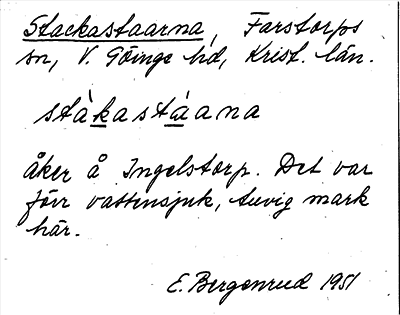 Stackastaarna, Farstorps
sn, V. Göinge hd, Krist. län.
stàkastàana
åker å Ingelstorp. Det var
förr vattensjuk, tuvig mark
här.
E. Bergenrud 1951